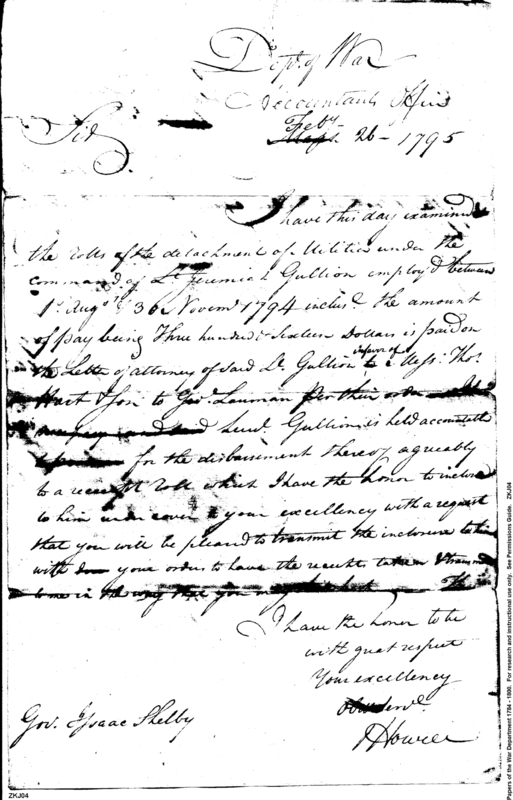 Dept. of War
Accountants Office
Feby.
26 - 1795
Sir
I have this day examined
the rolls of the detachment of Militia under the
command of Lt. Jeremiah Gullion employ'd between
1st Augt. & 30 Novemr. 1794 inclusd. the amount
of pay being Three hundred & Sixteen Dollars is paid on
the Letter of attorney of said Lt. Gullion in favor of Messrs. Thos.
Hart & Son to Geo. Lauman per their order
Lieut. Gullion is held accountable
for the disbursement thereof agreeably
to a receipt roll which I have the honor to inclose
to him under cover to your excellency with a request
that you will be pleased to transmit the inclosure to him
with your orders to have the receipts taken & transmd
to me in the way that you may
I have the honor to be
with great respect
Your excellency
Obed Servt.
J Howell
Gov. Isaac Shelby
ZKJ04
Papers of the War Department 1784 - 1800. For research and instructional use only. See Permissions Guide. ZKJ04